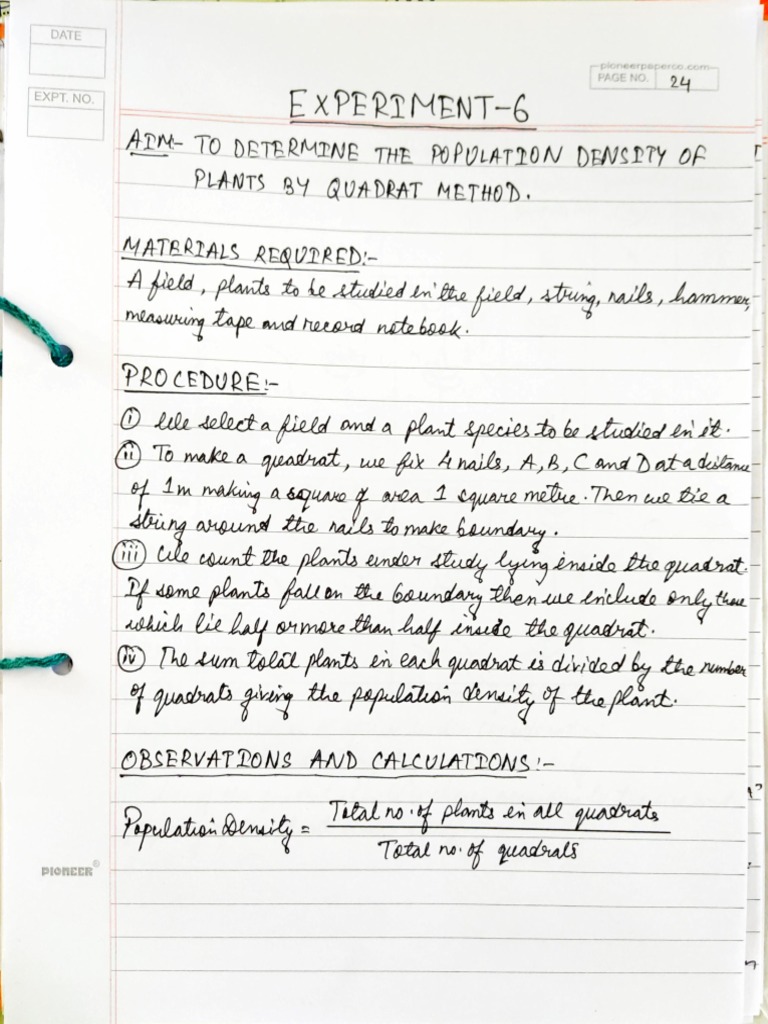 DATE
pioneerpaperco.com
PAGE NO. 24
EXPT. NO.
EXPERIMENT-6
AIM- TO DETERMINE THE POPULATION DENSITY OF
PLANTS BY QUADRAT METHOD.
MATERIALS REQUIRED:-
A field, plants to be studied in the field, string, nails, hammer,
measuring tape and record notebook.
PROCEDURE:-
(i) We select a field and a plant species to be studied in it.
(ii) To make a quadrat, we fix 4 nails, A, B, C and D at a distance
of 1m making a square of area 1 square metre. Then we tie a
string around the nails to make boundary.
(iii) We count the plants under study lying inside the quadrat.
If some plants fall on the boundary then we include only those
which lie half or more than half inside the quadrat.
(iv) The sum total plants in each quadrat is divided by the number
of quadrats giving the population density of the plant.
OBSERVATIONS AND CALCULATIONS:-
Population Density = Total no. of plants in all quadrats
Total no. of quadrats
PIONEER